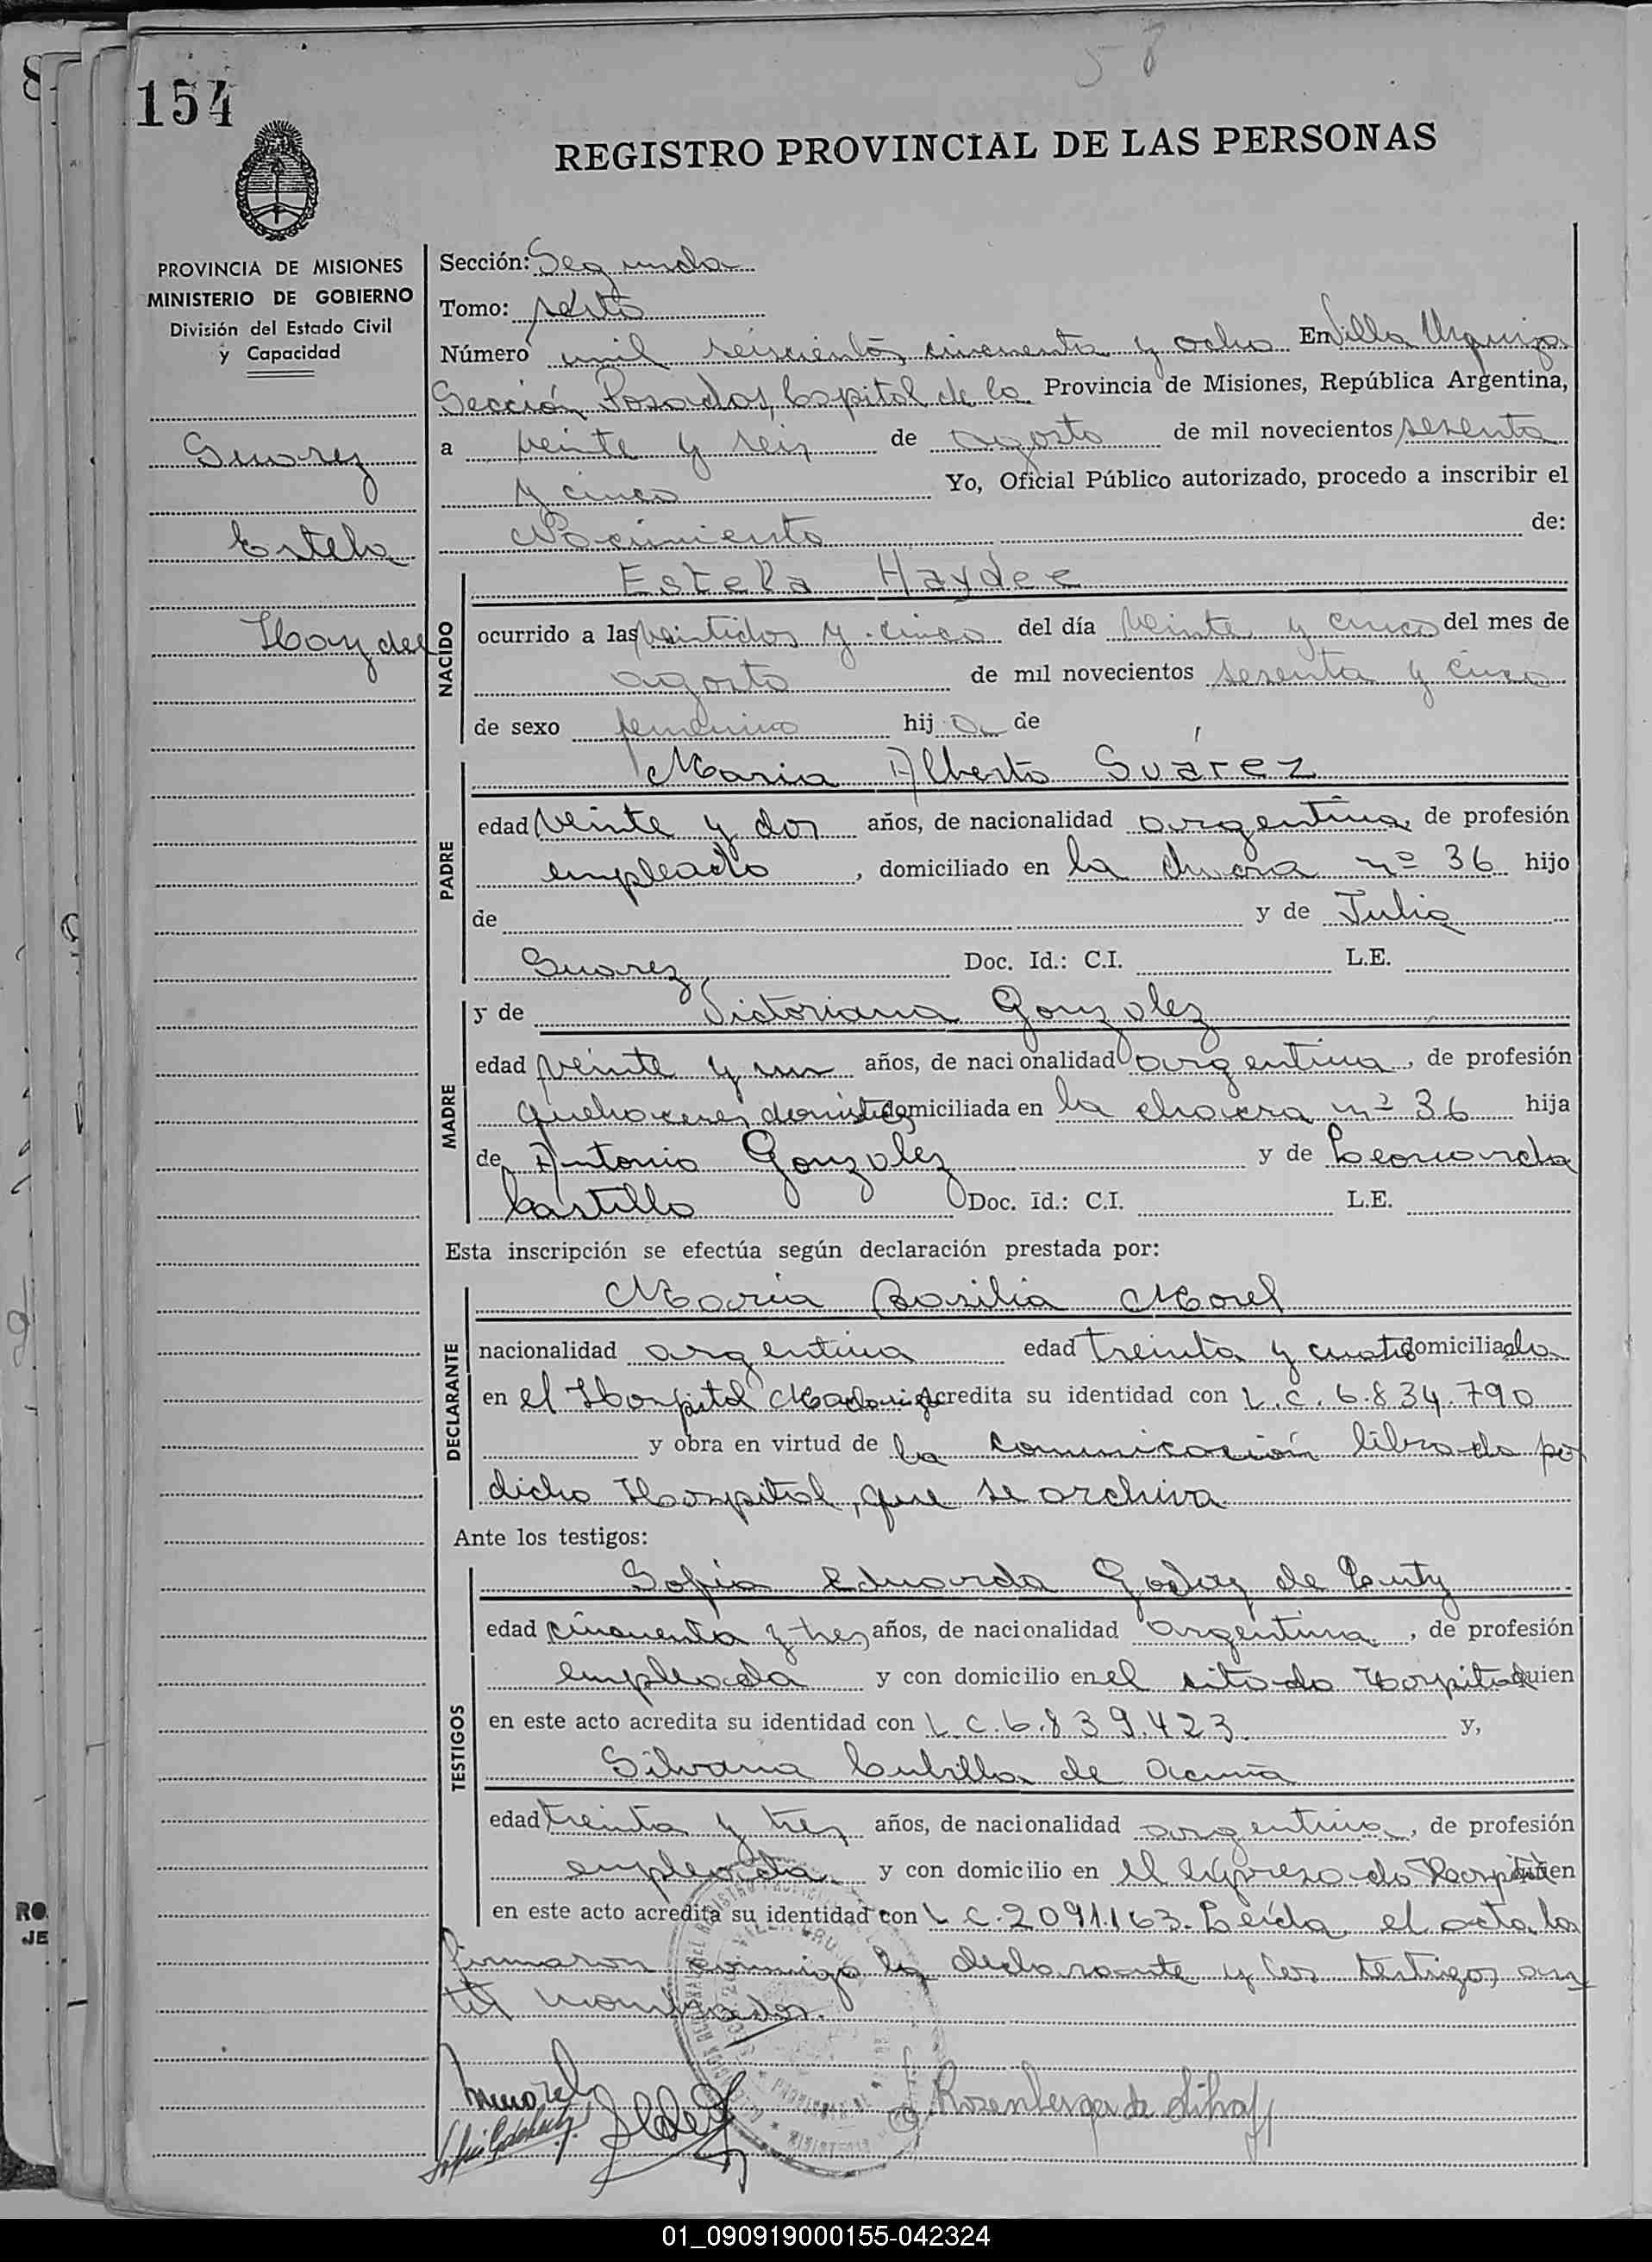 58
154
REGISTRO PROVINCIAL DE LAS PERSONAS
PROVINCIA DE MISIONES
MINISTERIO DE GOBIERNO
División del Estado Civil
y Capacidad
Suarez
Estela
Haydee
Sección: Segunda
Tomo: sexto
Número mil seiscientos cincuenta y ocho En Villa Urquiza
Sección Posadas, Capital de la Provincia de Misiones, República Argentina,
a veinte y seis de agosto de mil novecientos sesenta
y cinco Yo, Oficial Público autorizado, procedo a inscribir el
Nacimiento de:
NACIDO
Estela Haydee
ocurrido a las veintidos y cinco del día veinte y cinco del mes de
agosto de mil novecientos sesenta y cinco
de sexo femenino hija de
PADRE
Mario Alberto Suárez
edad veinte y dos años, de nacionalidad argentina, de profesión
empleado, domiciliado en la chacra nº 36 hijo
de y de Julia
Suarez Doc. Id.: C.I. L.E.
MADRE
y de Victoriana Gonzalez
edad veinte y un años, de nacionalidad argentina, de profesión
quehaceres domésticos domiciliada en la chacra nº 36 hija
de Antonio Gonzalez y de Leonarda
Castillo Doc. Id.: C.I. L.E.
Esta inscripción se efectúa según declaración prestada por:
DECLARANTE
María Basilia Morel
nacionalidad argentina edad treinta y cuatro domiciliada
en el Hospital Madariaga acredita su identidad con L.C. 6.834.790
y obra en virtud de la comunicación librada por
dicho Hospital, que se archiva
Ante los testigos:
TESTIGOS
Sofia Eduarda Godoy de
edad cincuenta y tres años, de nacionalidad argentina, de profesión
empleada y con domicilio en el citado Hospital quien
en este acto acredita su identidad con L.C. 6.839.423 y,
Silvana Cubilla de Acuña
edad treinta y tres años, de nacionalidad argentina, de profesión
empleada y con domicilio en el expresado Hospital quien
en este acto acredita su identidad con L.C. 2091.163. Leída el acta, la
firmaron conmigo la declarante y los testigos an
tes nombrados.
01_090919000155-042324